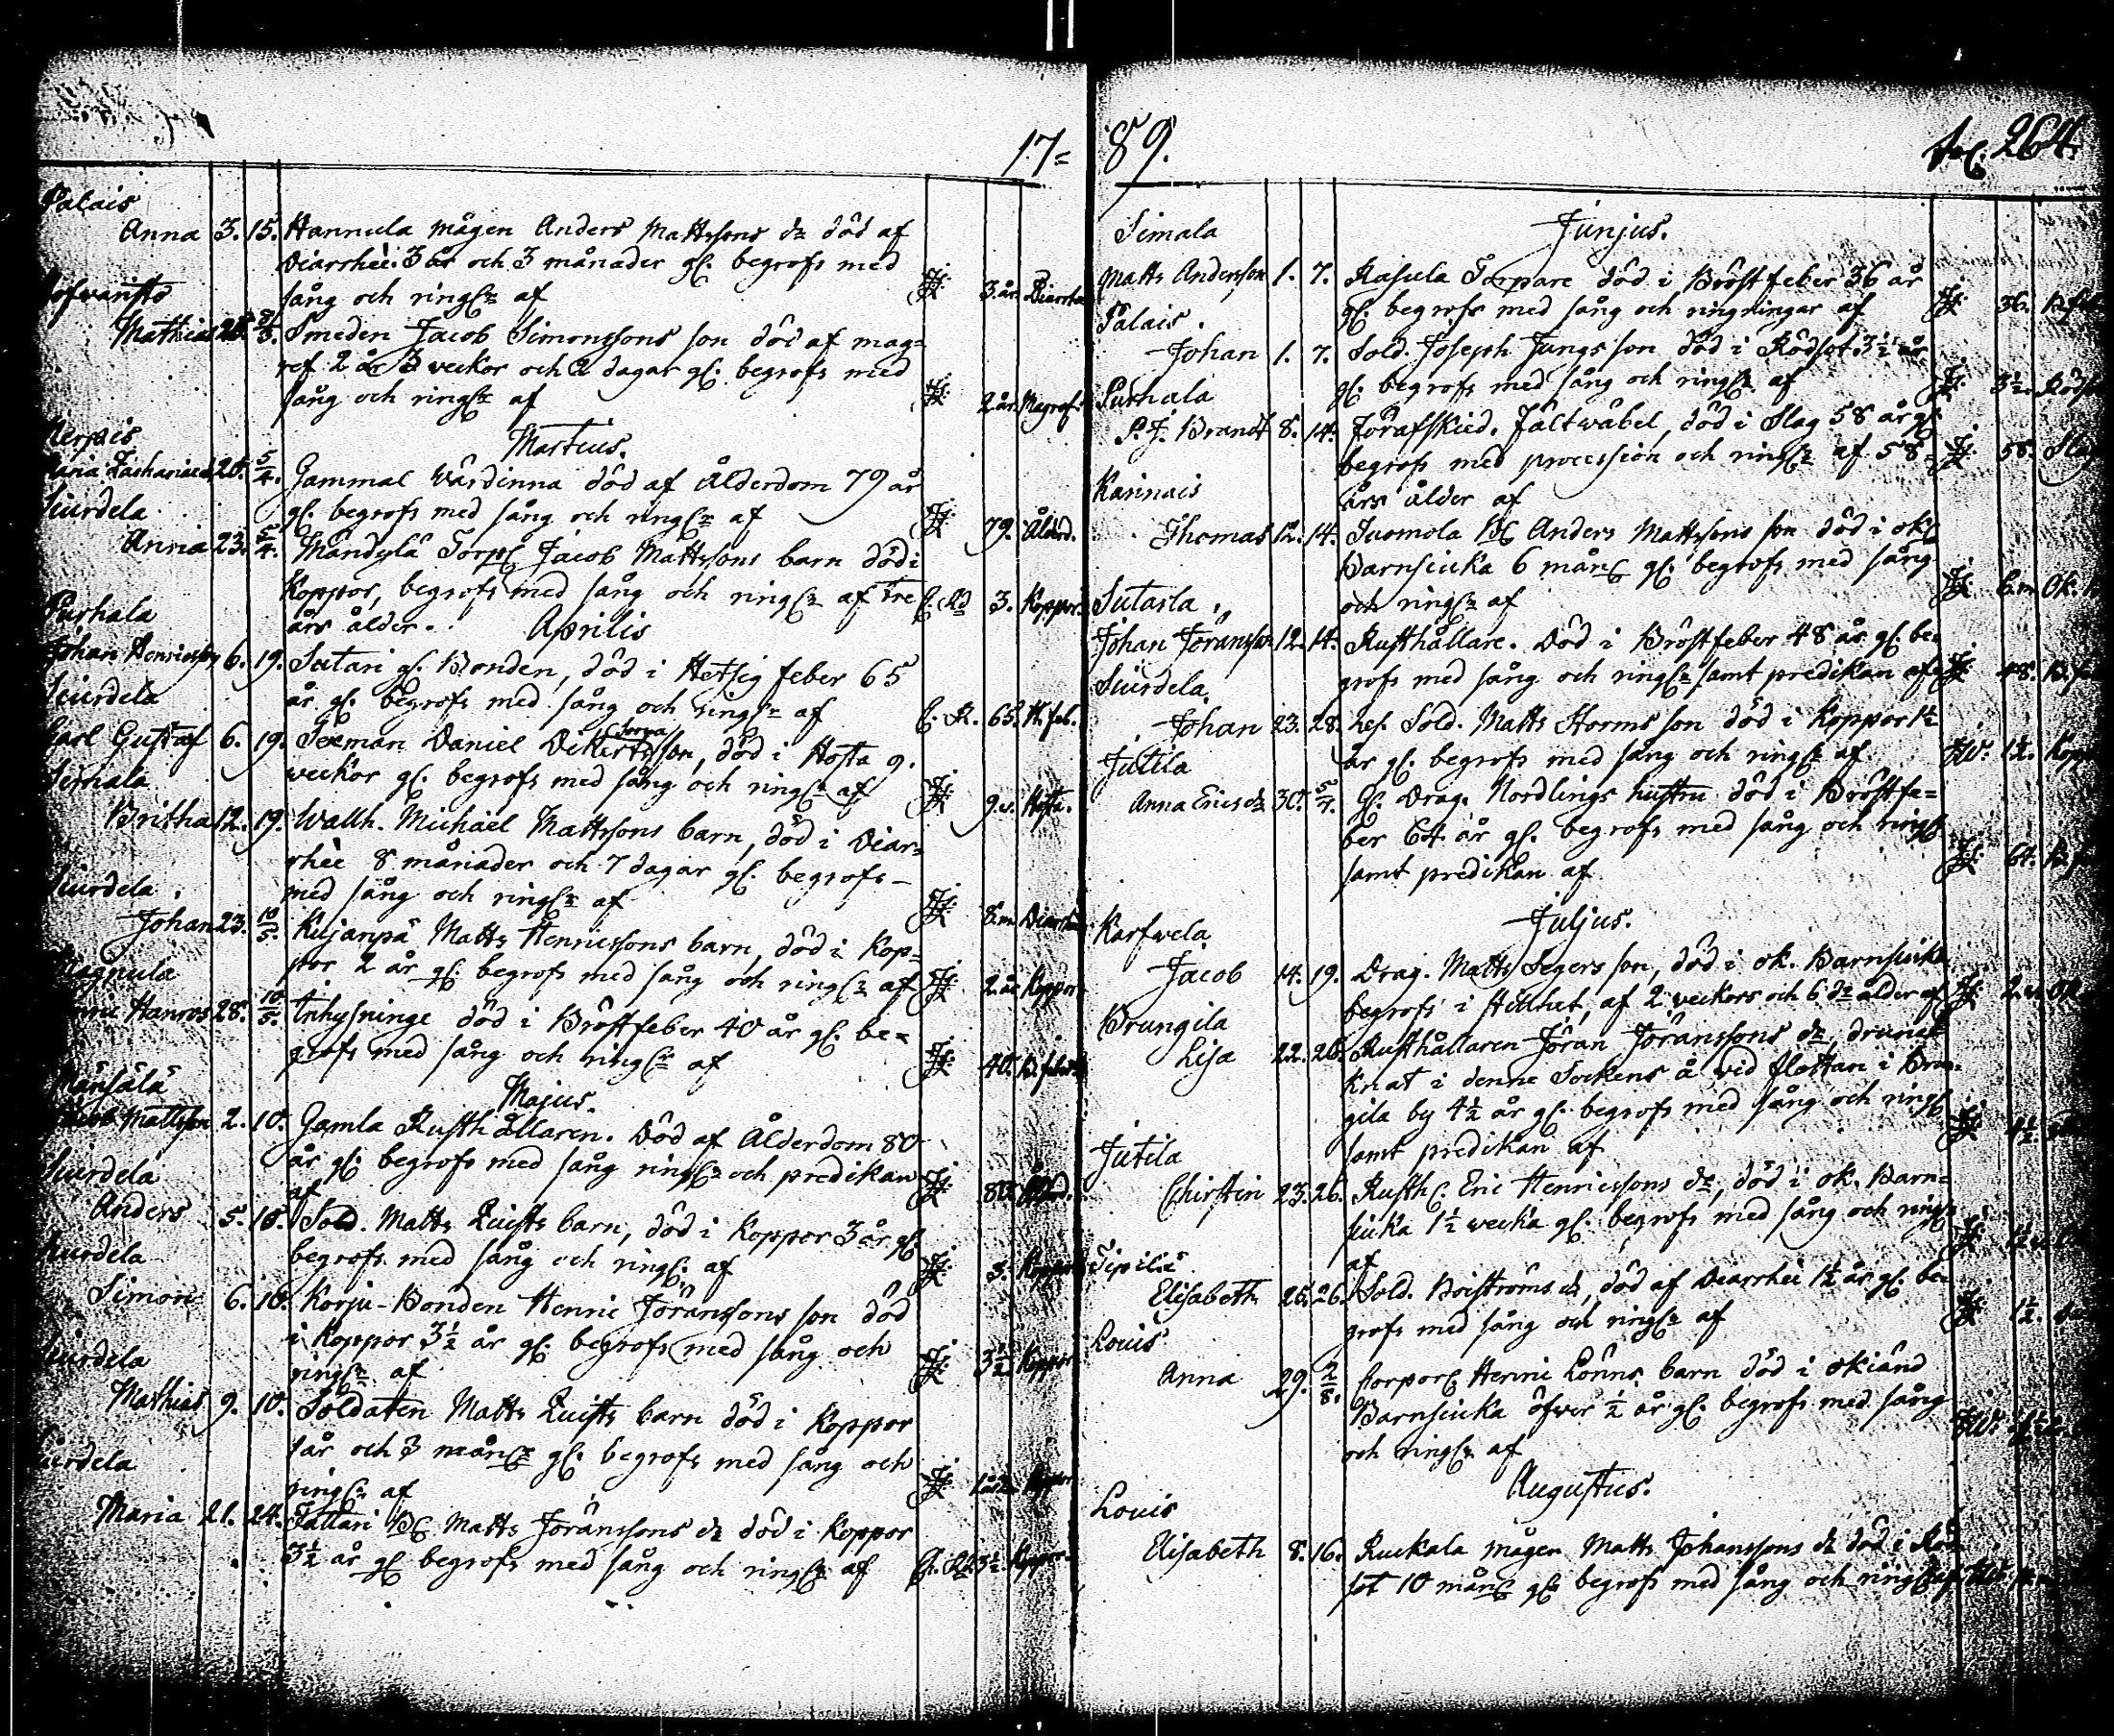 17=
Palais
Anna 3. 15. Hannula mågen Anders Mattssons dr död af
Diarrhèe. 3 år och 3 månader gl. begrofs med
sång och ringr af 3. år Diarrhe
Mathias Smeden Jacob Simonssons son död af mag=
ref 2 år 3 veckor och 2 dagar gl. begrofs med
sång och ringr af 2 år Magref.
Martius.
Maria Zachariæd. 25. 5/4. Gammal Värdinna död af Ålderdom 79 år
gl. begrofs med sång och ringr af 79. Ålderd.
Siurdela
Anna 23. 5/4. Mändylä Torp. Jacob Mattssons barn död i
Koppor, begrofs med sång och ringr af tre 3. Koppor.
års ålder.
Aprilis
Purhala
Johan Henricsson 6. 19. Sutari gl. Bonden, död i Hetsig feber 65
år gl. begrofs med sång och ringr af 65. H. feb.
Siurdela
Carl Gustaf 6. 19. Seeman Daniel son, död i Hosta 9.
veckor gl. begrofs med sång och ringr af 9. v. Hosta.
Simala
Britha 12. 19. Wallh. Michael Mattssons barn, död i Diar=
rhèe 8 månader och 7 dagar gl. begrofs
med sång och ringr af 8. m. Diarrhe
Siurdela
Johan 23. 10/5. Kujanpä Matts Henricssons barn, död i Kop=
por 2 år gl. begrofs med sång och ringr af 2 år Koppor
28. 10/5. Inhysninge död i Bröstfeber 40 år gl. be=
grofs med sång och ringr af 40. Br. feber
Majus.
Mattsson 2. 10. Gamla Rusthållaren. Död af Ålderdom 80
år gl. begrofs med sång ringr och predikan
af 80.
Siurdela
Anders 5. 10. Sold. Matts Quists barn, död i Koppor 3 år gl.
begrofs med sång och ringr af 3. Koppor
Siurdela
Simon 6. 10. Korju-Bonden Henric Jöranssons son död
i Koppor 3½ år gl. begrofs med sång och
ringr af 3½ Koppor
Siurdela
Mathias 9. 10. Soldaten Matts Quists barn död i Koppor
1 år och 3 månr gl. begrofs med sång och
ringr af
Siurdela
Maria 21. 24. Jallari Matts Jöranssons dr död i Koppor
3½ år gl. begrofs med sång och ringr af 3½. Koppor.
89.
264.
Junjus.
Simala
Matts Andersson 1. 7. Rasula Torpare död i Bröstfeber 36 år
gl. begrofs med sång och ringningar af 36.
Palais.
Johan 1. 7. Sold. Joseph Jungs son död i Rödsot 3½ år
gl. begrofs med sång och ringr af 3½.
Purhala
P. J. Brandt 8. 14. Förafskied. Fältwäbel, död i Slag 58 år gl.
begrofs med procession och ringr af 58 58. Slag
års ålder af
Karinais
Thomas 12. 14. Suomola Anders Mattssons son död i ok.
Barnsiuka 6 mån. gl. begrofs med sång
och ringr af 6. m. Ok.
Sutarla.
Johan Jöransson 12. 14. Rusthållare. Död i Bröstfeber 48 år gl. be=
grofs med sång och ringr samt predikan af 48.
Siurdela
Johan 23. 28. Sold. Matts Storms son död i Koppor 1½
år gl. begrofs med sång och ringr af 1½.
Jutila
Anna Ericsdr 30. 5/7. Gl. Drag. Nordlings hustru död i Bröstfe=
ber 64 år gl. begrofs med sång och ringr
samt predikan af 64.
Juljus.
Karfwela
Jacob 14. 19. Drag. Matts Segers son, död i ok. Barnsiuka
begrofs i Stillhet, af 2 veckors och 6 dr ålder af
Brungila
Lisa 22. 26. Rusthållaren Jöran Jöranssons dr, drunck=
nat i denne Sockens å vid flottan i Brun=
gila by 4½ år gl. begrofs med sång och ringr
samt predikan af
Jutila
Chirstin 23. 26. Rusth. Eric Henricssons dr, död i ok. Barn=
siuka 1½ vecka gl. begrofs med sång och ringr
af
Tipilä
Elisabeth 26. 26. Sold. Boiströms dr, död af Diarrhèe 1½ år gl. be=
grofs med sång och ringr af 1½.
Louis
Anna 29. 2/8. Corpor. Henric Lönns barn död i okiänd
Barnsiuka öfwer ½ år gl. begrofs med sång
och ringr af
Augustus.
Louis
Elisabeth 8. 16. Ruckala mågen Matts Johanssons dr död i Röd=
sot 10 mån. gl. begrofs med sång och ringr af